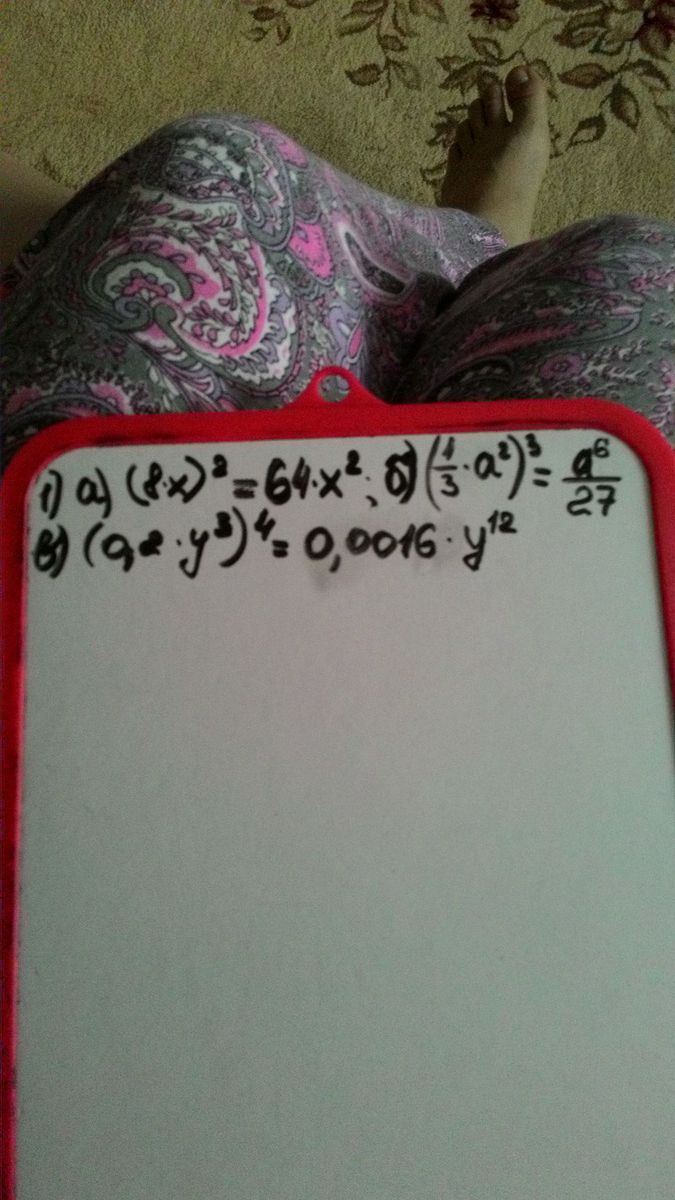 1) а) (8·x)² = 64·x²; б) (1/3·a²)³ = a⁶/27
в) (0,2·y³)⁴ = 0,0016·y¹²